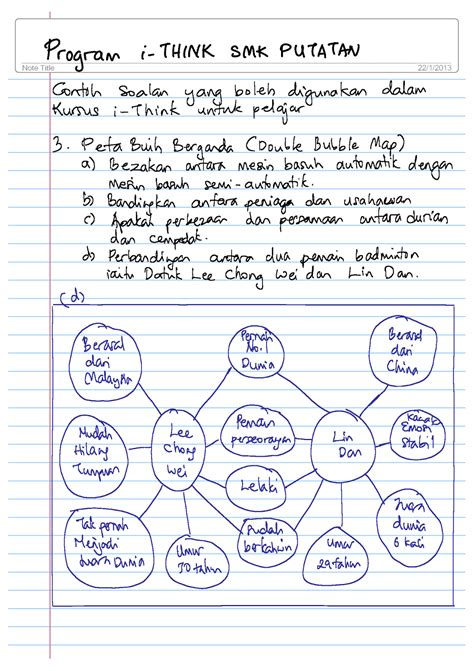 Program i-THINK SMK PUTATAN
Note Title
22/1/2013
Contoh Soalan yang boleh digunakan dalam
Kursus i-Think untuk pelajar
3. Peta Buih Berganda (Double Bubble Map)
a) Bezakan antara mesin basuh automatik dengan
mesin basuh semi-automatik.
b) Bandingkan antara peniaga dan usahawan
c) Apakah perbezaan dan persamaan antara durian
dan cempedak.
d) Perbandingan antara dua pemain badminton
iaitu Datuk Lee Chong Wei dan Lin Dan.
(d)
Berasal
dari
Malaysia
Pernah
No.1
Dunia
Berasal
dari
China
Mudah
Hilang
Tumpuan
Lee
Chong
Wei
Pemain
perseorangan
Lin
Dan
Emosi
Stabil
Lelaki
Tak pernah
Menjadi
Juara Dunia
Umur
30 tahun
Sudah
berkahwin
Umur
29 tahun
Juara
dunia
5 kali